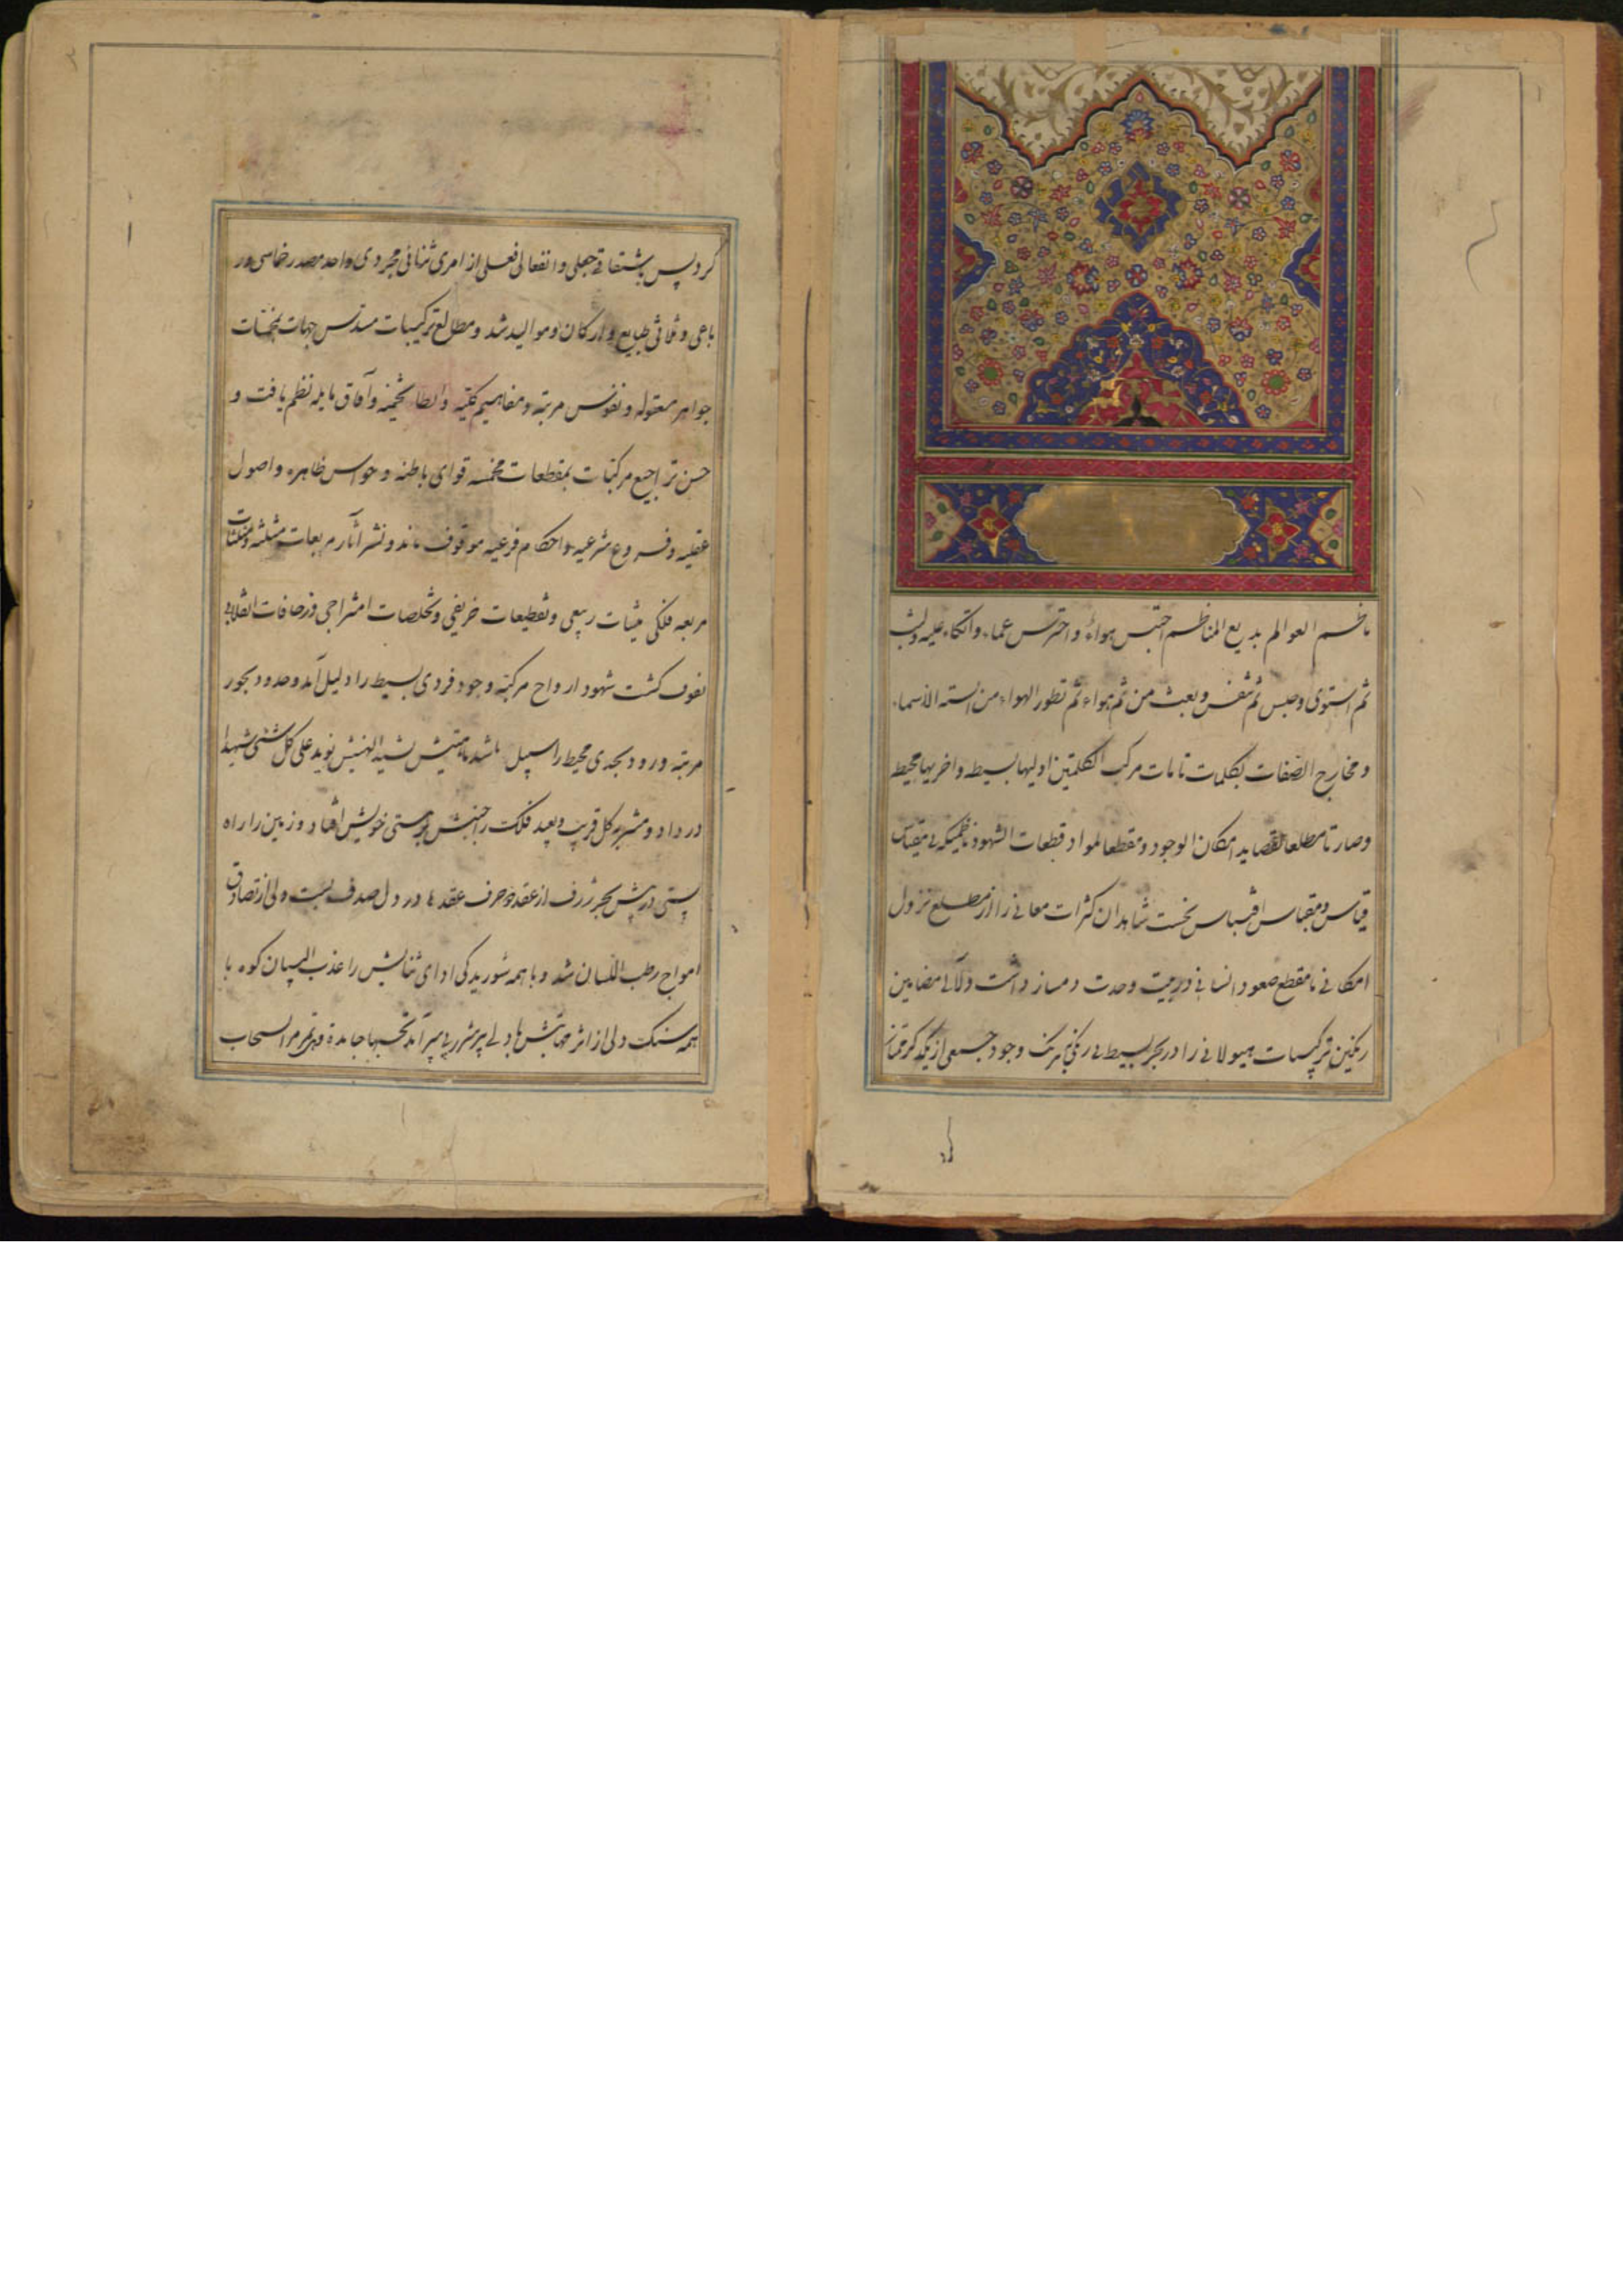 ناظم العوالم بدیع المناظم احتبس هواءً واحترس عماء واتکاء علیه ولبث
ثم استوی وحبس ثم تنفس وبعث من ثم هواء ثم تطور الهواء من السنه الاسماء
و مخارج الصفات بکلمات تامات مرکب الکلمتین اولیها بسیطه واخریها محیطه
وصارتا مطلعا لقصاید امکان الوجود و مقطعا لمواد قطعات الشهود ناظمیکه بی مقیاس
قیاس و مقباس اقتباس نخست شاهدان کثرات معانی را از مطلع نزول
امکانی تا مقطع صعود انسانی در بیت وحدت دمساز داشت و لآلی مضامین
رنگین ترکیبات هیولانی را در بحر بسیط بی رنگی یکرنگ وجود جمعی از یکدیگر ممتاز
کرد پس باشتقاق جعلی و انفعالی فعلی از امری ثنائی مجردی واحد مصدر خماسی و ر
باعی و ثلاثی طبایع و ارکان و موالید شد و مطالع ترکیبات مسدس جهات
جواهر معقوله و نفوس مرتبه و مفاهیم کلیه و آفاق مایله نظم یافت و
حسن تراجیع مرکبات بمقطعات مخمسه قوای باطنه و حواس ظاهره و اصول
عقلیه و فروع شرعیه و احکام فرعیه موقوف ماند و نشر آثار مربعات مثلثه و مثلثات
مربعه فلکی ربیعی و تقطیعات خریفی و تخلصات امتزاجی و زحافات انقلابی
کشت شهود ارواح مرکبه وجود فردی بسیط را دلیل آمد و حدود بحور
مرتبه ورود بحدی محیط را سبیل نوید علی کل شیء شهیدا
در داد و کل قریب و بعید فلک را جنبش هستی خویش و زمین را راه
پستی در پیش بحر ژرف از عقد دو حرف عقدها در دل صدف بست ولی از تصادق
امواج رطب اللسان شد و با همه شوریدگی ادای ثنایش را عذب البیان کوه با
همه سنگ دلی از اثر دلی پر شرر آمد تحسبها جامدة وهی تمر مر السحاب